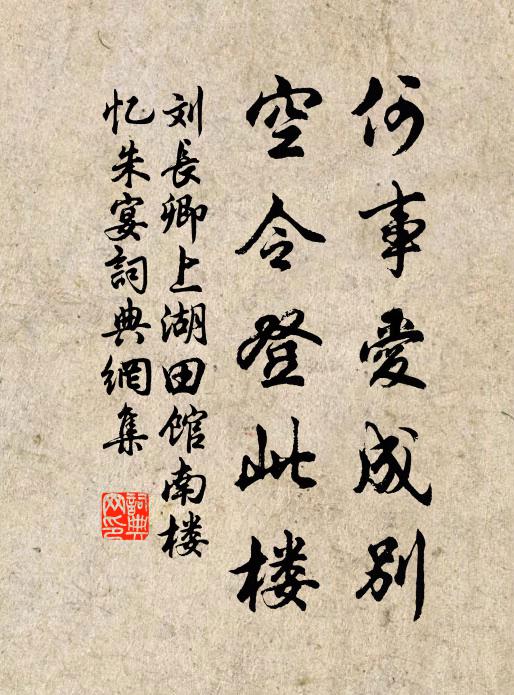 何事愛成别
空令登此楼
刘長卿上湖田馆南楼
忆朱宴詞典網集
詞典网印